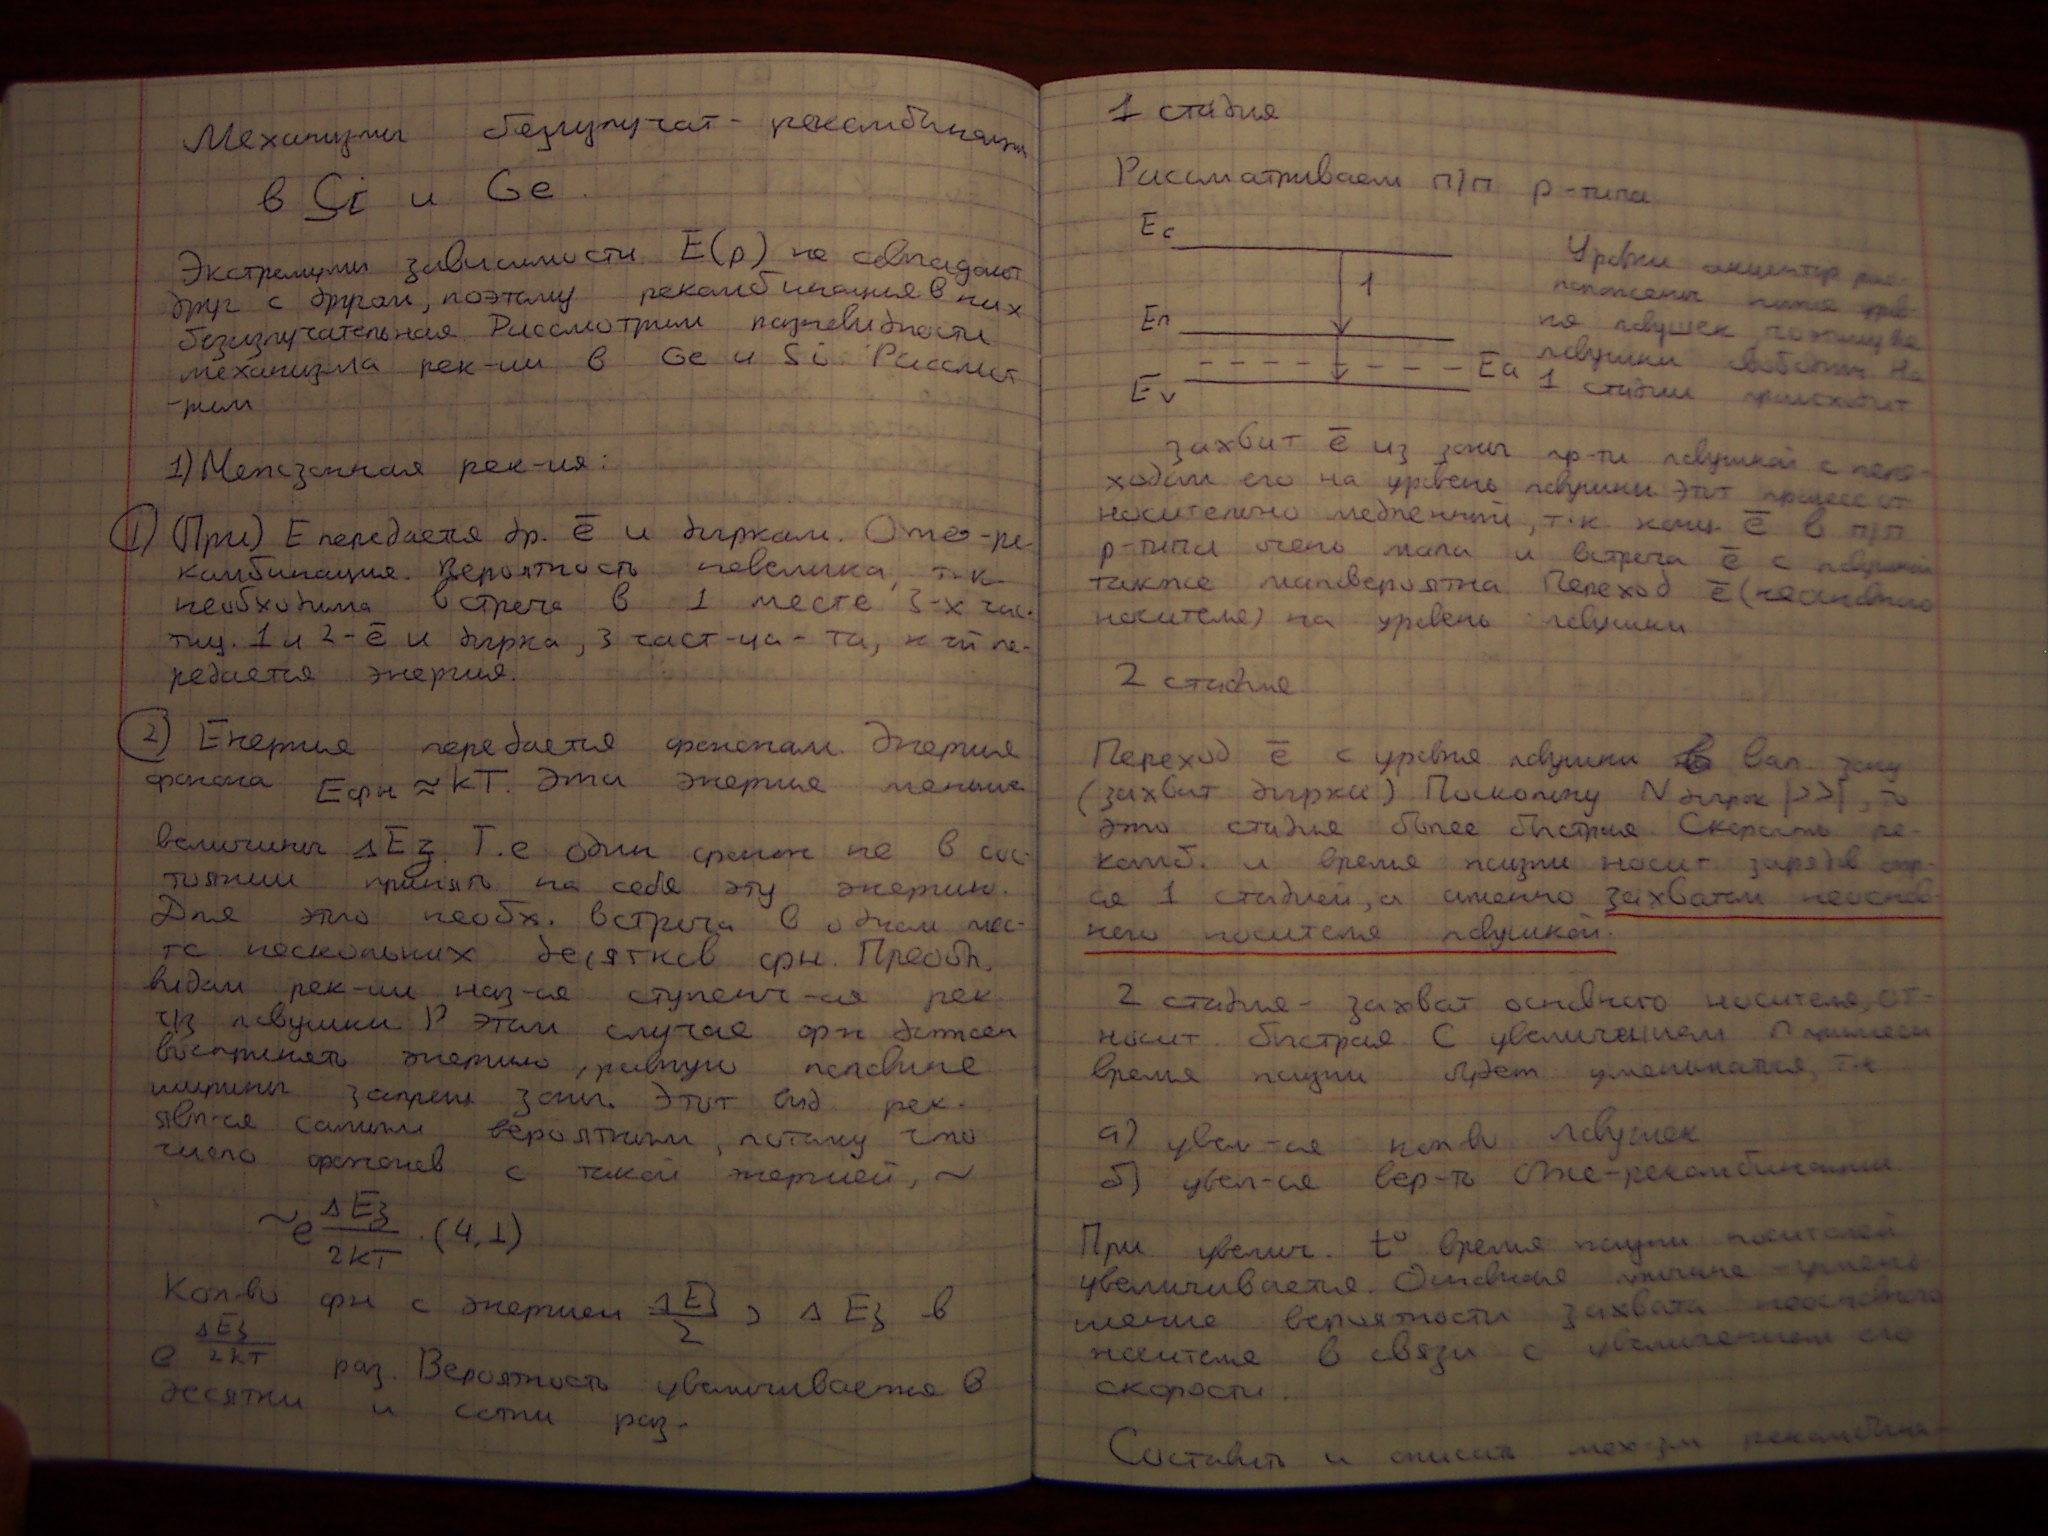 Механизмы безизлучат- рекомбинации
в Si и Ge.
Экстремумы зависимости E(p) не совпадают
друг с другом, поэтому рекомбинация в них
безизлучательная. Рассмотрим разновидности
механизма рек-ии в Ge и Si. Рассмот
-рим
1) Межзонная рек-ия:
1) (При) E передается др. ē и дыркам. Оже-ре-
комбинация. Вероятность невелика, т.к.
необходима встреча в 1 месте 3-х час-
тиц. 1 и 2 - ē и дырка, 3 част-ца - та, к-й пе-
редается энергия.
2) Енергия передается фононам. Энергия
фонона Eфн ≈ kT. Эта энергия меньше
величины ΔEз. Т.е один фонон не в сос-
тоянии принять на себя эту энергию.
Для этого необх. встреча в одном мес-
те нескольких десятков фн. Преобл.
видом рек-ии наз-ся ступенч-ая рек.
ч/з ловушки. В этом случае фн должен
воспринять энергию, равную половине
ширины запрещ зоны. Этот вид рек.
явл-ся самым вероятным, потому что
число фононов с такой энергией, ~
~e ΔEз/2kT . (4,1)
Кол-во фн с энергией ΔEз/2 > ΔEз в
e ΔEз/2kT раз. Вероятность увеличивается в
десятки и сотни раз.
1 стадия
Рассматриваем п/п p-типа
Ec
1
Eл
Ea
Ev
Уровни акцептор рас-
положены ниже уров-
ня ловушек, поэтому все
ловушки свободны. На
1 стадии происходит
захват ē из зоны пр-ти ловушкой с пере-
ходом его на уровень ловушки. Этот процесс от
носительно медленный, т.к конц. ē в п/п
p-типа очень мала и встреча ē с ловушкой
также маловероятна. Переход ē (неосновного
носителя) на уровень ловушки
2 стадия
Переход ē с уровня ловушки в вал. зону
(захват дырки) Поскольку N дырок |>>|, то
это стадия более быстрая. Скорость ре-
комб. и время жизни носит. зарядов опр-
ся 1 стадией, а именно захватом неоснов-
ного носителя ловушкой.
2 стадия - захват основного носителя, от-
носит. быстрая. С увеличением n примеси
время жизни будет уменьшаться, т.к
а) увел-ся кол-во ловушек
б) увел-ся вер-ть Оже-рекомбинации.
При увелич. t° время жизни носителей
увеличивается. Основная причина - умень
шение вероятности захвата неосновного
носителя в связи с увеличением его
скорости.
Составить и описать мех-зм рекомбина-